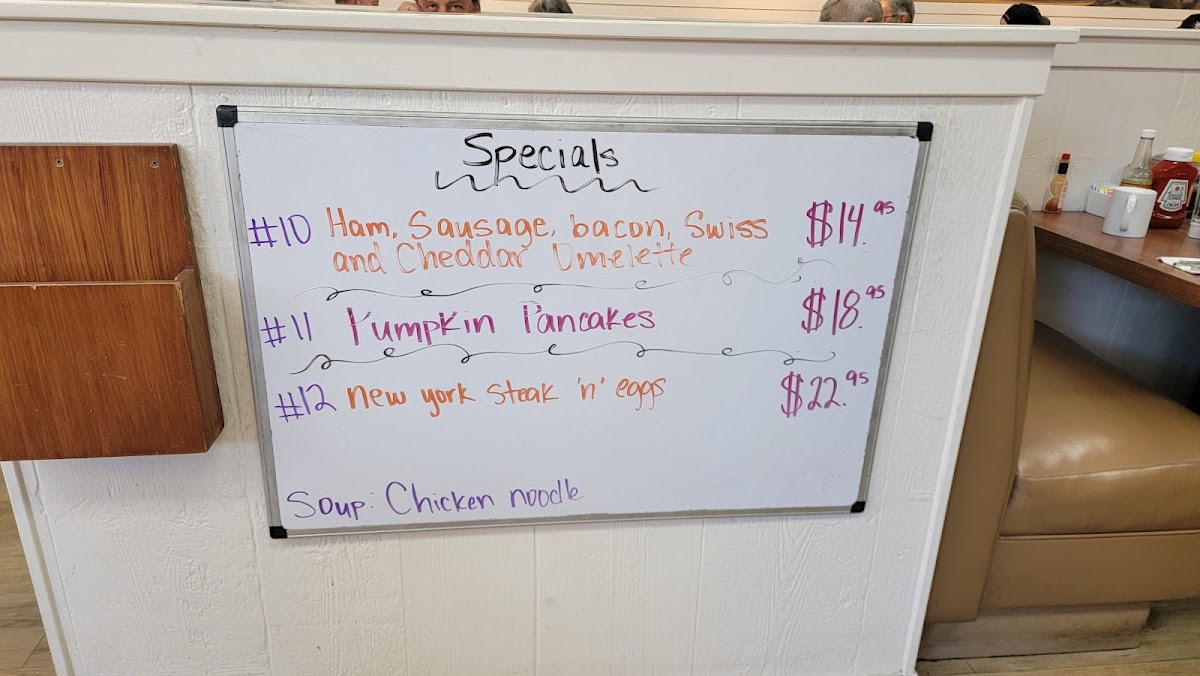 Specials
#10 Ham, Sausage, bacon, Swiss $14.95
and Cheddar Omelette
#11 Pumpkin Pancakes $18.95
#12 New york Steak 'n' eggs $22.95
Soup: Chicken noodle